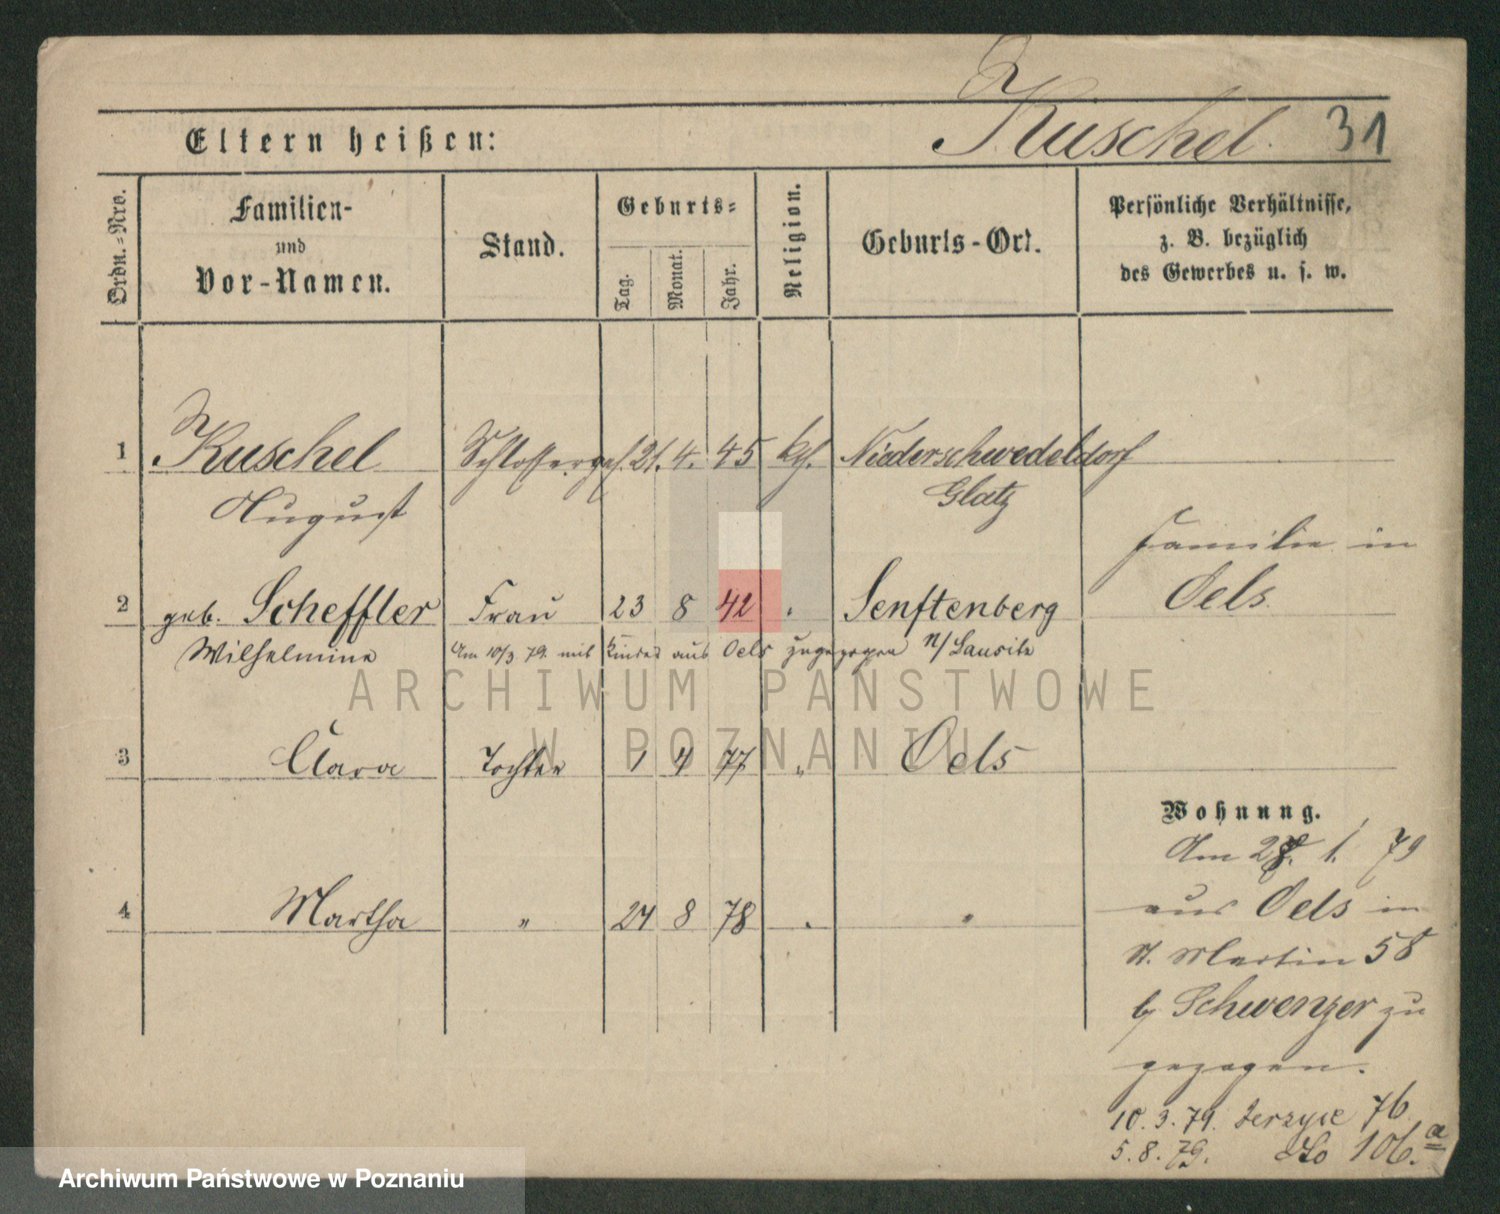 Kuschel. 31
Eltern heißen:
Ordn.=Nro.
Familien-
und
Vor-Namen.
Stand.
Geburts=
Tag.
Monat.
Jahr.
Religion.
Geburts-Ort.
Persönliche Verhältnisse,
z. B. bezüglich
des Gewerbes u. s. w.
1 Kuschel Schlosserges. 21. 4. 45 kth. Niederschwedeldorf
August Glatz
Familie in
2 geb. Scheffler Frau 23 8 42 " Senftenberg Oels.
Wilhelmine Am 10/3 79 mit Kinder aus Oels zugezogen N/Lausitz
3 Clara Tochter 1 4 77 " Oels
Wohnung.
Am 27. 1. 79
4 Martha " 24 8 78 " "
aus Oels in
St. Martin 58
b/ Schwenzer zu
gezogen.
10.3.79. Jerzyce 76
5.8.79. do 106.a
ARCHIWUM PAŃSTWOWE
W POZNANIU
Archiwum Państwowe w Poznaniu